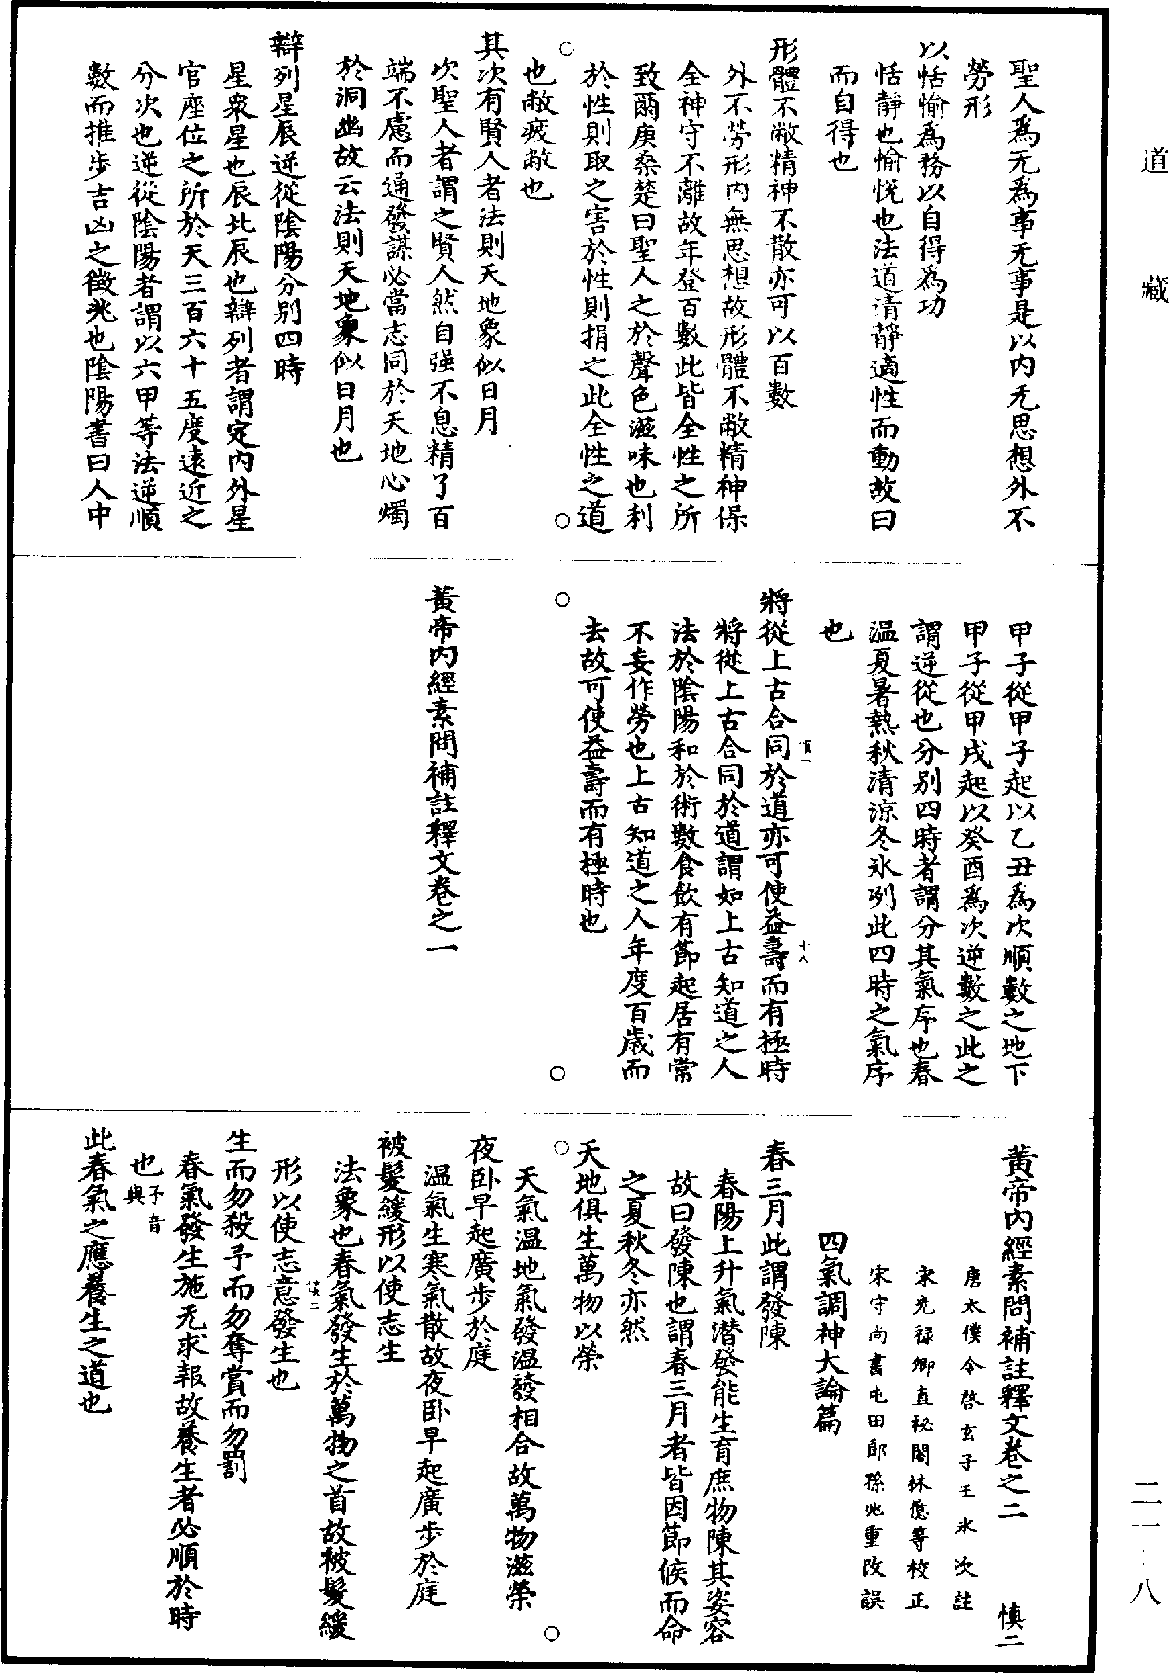 道藏
聖人為无為事无事是以内无思想外不
勞形
以恬愉為務以自得為功
恬靜也愉悅也法道清靜適性而動故曰
而自得也
形體不敝精神不散亦可以百數
外不勞形内無思想故形體不敝精神保
全神守不離故年登百數此皆全性之所
致爾庚桑楚曰聖人之於聲色滋味也利
於性則取之害於性則捐之此全性之道
也敝疲敝也
其次有賢人者法則天地象似日月
次聖人者謂之賢人然自强不息精了百
端不慮而通發謀必當志同於天地心燭
於洞幽故云法則天地象似日月也
辯列星辰逆從陰陽分别四時
星衆星也辰北辰也辯列者謂定内外星
官座位之所於天三百六十五度遠近之
分次也逆從陰陽者謂以六甲等法逆順
數而推步吉凶之徵兆也陰陽書曰人中
甲子從甲子起以乙丑為次順數之地下
甲子從甲戌起以癸酉為次逆數之此之
謂逆從也分别四時者謂分其氣序也春
温夏暑熱秋清涼冬氷列此四時之氣序
也
將從上古合同於道亦可使益壽而有極時
慎一
十八
將從上古合同於道謂如上古知道之人
法於陰陽和於術數食飲有節起居有常
不妄作勞也上古知道之人年度百歲而
去故可使益壽而有極時也
黃帝内經素問補註釋文卷之一
黃帝内經素問補註釋文卷之二 慎二
唐太僕令啓玄子王氷次註
宋光禄卿直秘閣林億等校正
宋守尚書屯田郎孫兆重改誤
四氣調神大論篇
春三月此謂發陳
春陽上升氣潜發能生育庶物陳其姿容
故曰發陳也謂春三月者皆因節候而命
之夏秋冬亦然
天地俱生萬物以榮
天氣温地氣發温發相合故萬物滋榮
夜卧早起廣步於庭
温氣生寒氣散故夜卧早起廣步於庭
被髮緩形以使志生
法象也春氣發生於萬物之首故被髮緩
形以使志意發生也
生而勿殺予而勿奪賞而勿罰
春氣發生施无求報故養生者必順於時
也予音與
此春氣之應養生之道也
二一·八